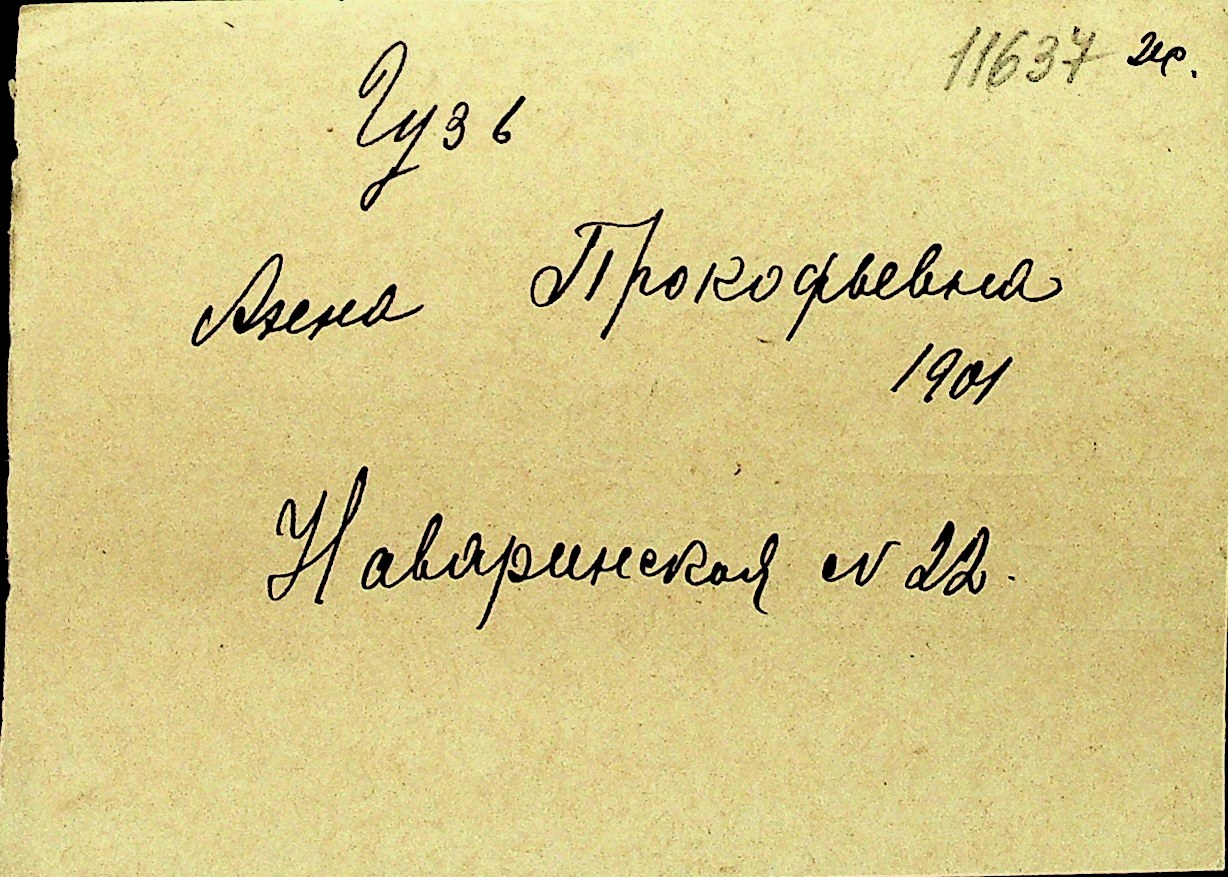 11637
Гузь
Анна Прокофьевна
1901
Наваринская N 22.